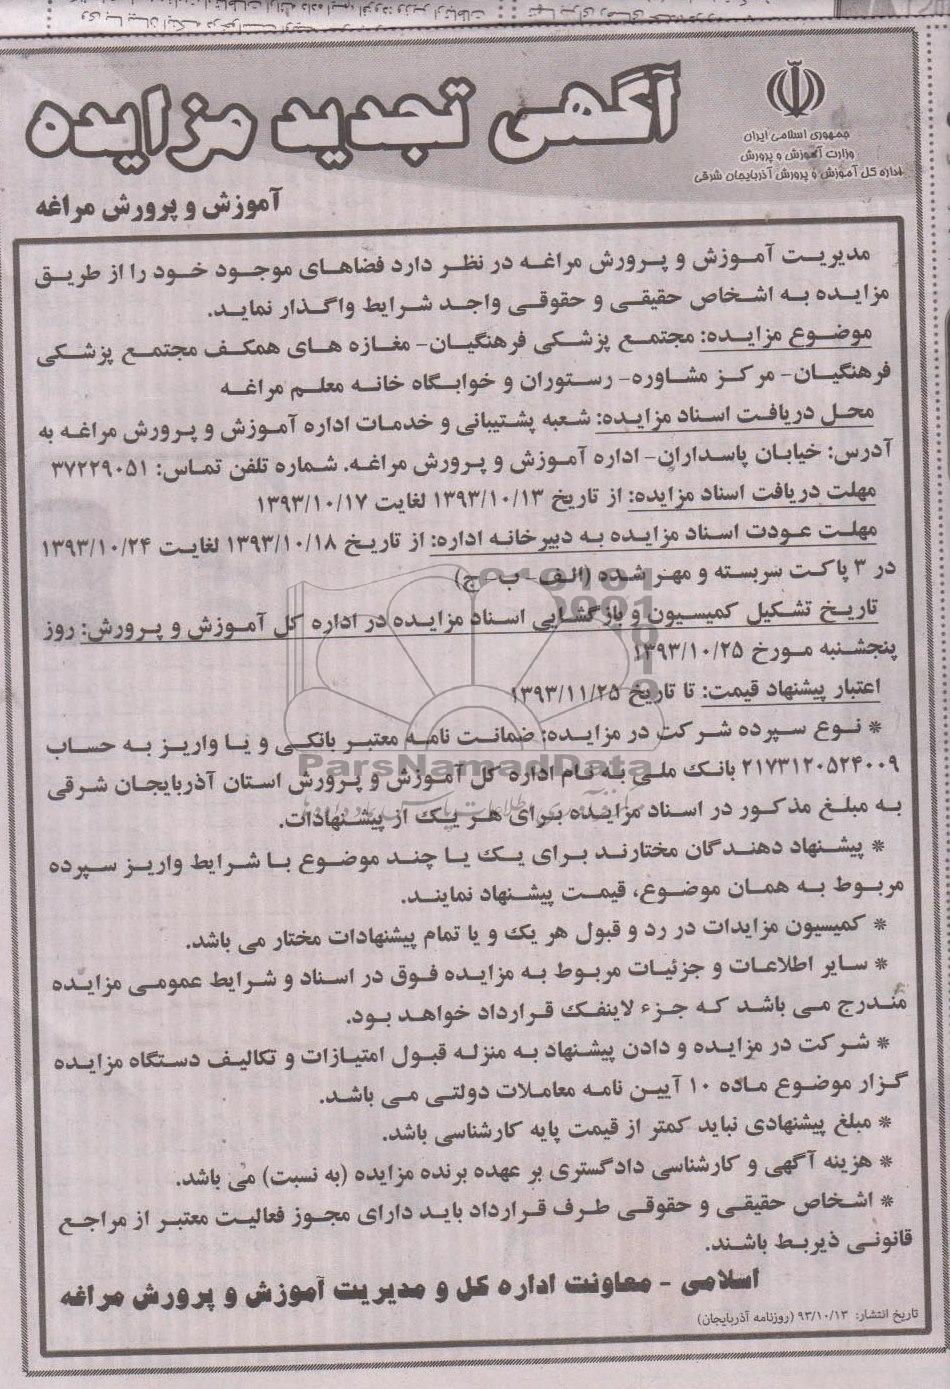 جمهوری اسلامی ایران
وزارت آموزش و پرورش
اداره کل آموزش و پرورش آذربایجان شرقی
آگهی تجدید مزایده
آموزش و پرورش مراغه
مدیریت آموزش و پرورش مراغه در نظر دارد فضاهای موجود خود را از طریق
مزایده به اشخاص حقیقی و حقوقی واجد شرایط واگذار نماید.
موضوع مزایده: مجتمع پزشکی فرهنگیان- مغازه های همکف مجتمع پزشکی
فرهنگیان- مرکز مشاوره- رستوران و خوابگاه خانه معلم مراغه
محل دریافت اسناد مزایده: شعبه پشتیبانی و خدمات اداره آموزش و پرورش مراغه به
آدرس: خیابان پاسداران- اداره آموزش و پرورش مراغه. شماره تلفن تماس: ۳۷۲۲۹۰۵۱
مهلت دریافت اسناد مزایده: از تاریخ ۱۳۹۳/۱۰/۱۳ لغایت ۱۳۹۳/۱۰/۱۷
مهلت عودت اسناد مزایده به دبیرخانه اداره: از تاریخ ۱۳۹۳/۱۰/۱۸ لغایت ۱۳۹۳/۱۰/۲۴
در ۳ پاکت سربسته و مهر شده (الف- ب- ج)
تاریخ تشکیل کمیسیون و بازگشایی اسناد مزایده در اداره کل آموزش و پرورش: روز
پنجشنبه مورخ ۱۳۹۳/۱۰/۲۵
اعتبار پیشنهاد قیمت: تا تاریخ ۱۳۹۳/۱۱/۲۵
* نوع سپرده شرکت در مزایده: ضمانت نامه معتبر بانکی و یا واریز به حساب
۲۱۷۳۱۲۰۵۲۴۰۰۹ بانک ملی به نام اداره کل آموزش و پرورش استان آذربایجان شرقی
به مبلغ مذکور در اسناد مزایده برای هر یک از پیشنهادات.
* پیشنهاد دهندگان مختارند برای یک یا چند موضوع با شرایط واریز سپرده
مربوط به همان موضوع، قیمت پیشنهاد نمایند.
* کمیسیون مزایدات در رد و قبول هر یک و یا تمام پیشنهادات مختار می باشد.
* سایر اطلاعات و جزئیات مربوط به مزایده فوق در اسناد و شرایط عمومی مزایده
مندرج می باشد که جزء لاینفک قرارداد خواهد بود.
* شرکت در مزایده و دادن پیشنهاد به منزله قبول امتیازات و تکالیف دستگاه مزایده
گزار موضوع ماده ۱۰ آیین نامه معاملات دولتی می باشد.
* مبلغ پیشنهادی نباید کمتر از قیمت پایه کارشناسی باشد.
* هزینه آگهی و کارشناسی دادگستری بر عهده برنده مزایده (به نسبت) می باشد.
* اشخاص حقیقی و حقوقی طرف قرارداد باید دارای مجوز فعالیت معتبر از مراجع
قانونی ذیربط باشند.
اسلامی - معاونت اداره کل و مدیریت آموزش و پرورش مراغه
تاریخ انتشار: ۹۳/۱۰/۱۳ (روزنامه آذربایجان)
ParsNamadData